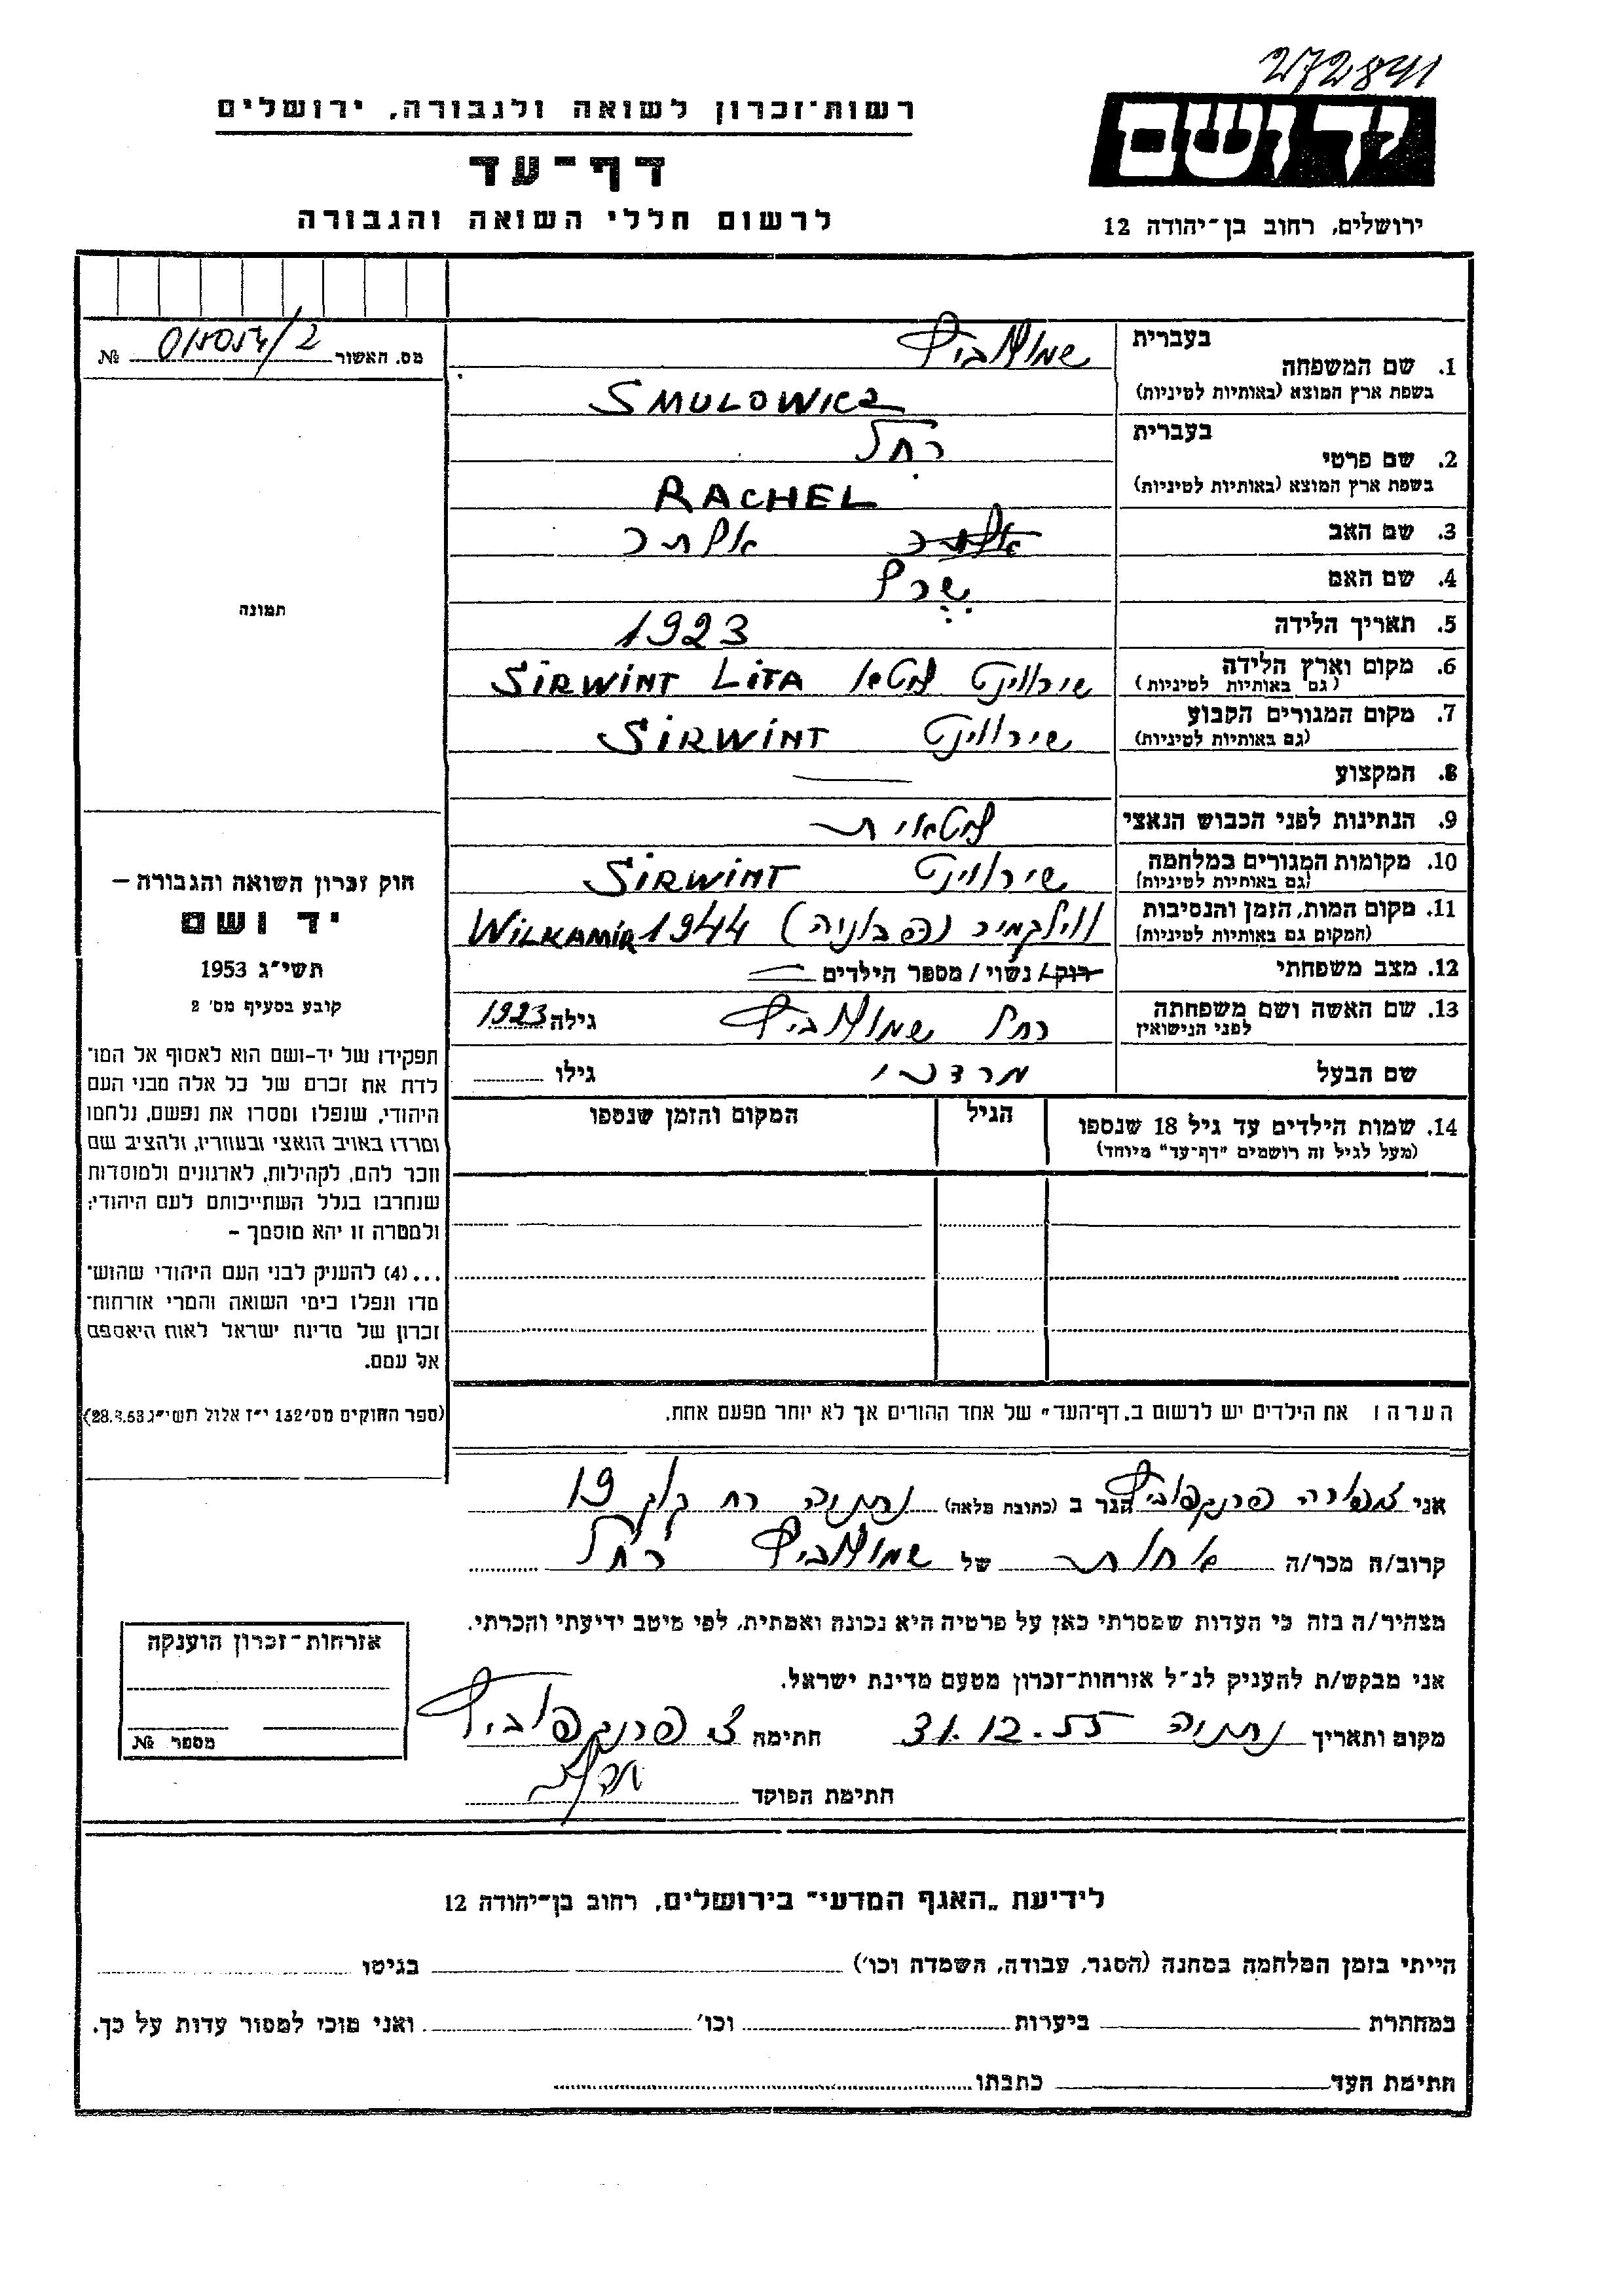 272841
יד ושם
ירושלים, רחוב בן־יהודה 12
רשות־זכרון לשואה ולגבורה, ירושלים
דף־עד
לרשום חללי השואה והגבורה
מס. האשור № /2
1. שם המשפחה בעברית שמולוביץ
בשפת ארץ המוצא (באותיות לטיניות) SMULOWICZ
2. שם פרטי בעברית רחל
בשפת ארץ המוצא (באותיות לטיניות) RACHEL
3. שם האב
4. שם האם
5. תאריך הלידה 1923
6. מקום וארץ הלידה (גם באותיות לטיניות) שירווינט ליטא SIRWINT LITA
7. מקום המגורים הקבוע (גם באותיות לטיניות) שירווינט SIRWINT
8. המקצוע —
9. הנתינות לפני הכבוש הנאצי ליטאית
10. מקומות המגורים במלחמה (גם באותיות לטיניות) שירווינט SIRWINT
11. מקום המות, הזמן והנסיבות (המקום גם באותיות לטיניות) ווילקמיר WILKAMIR 1944
12. מצב משפחתי רווק / נשוי / מספר הילדים —
13. שם האשה ושם משפחתה לפני הנישואין רחל שמולוביץ גילה 1923
שם הבעל מרדכי גילו
14. שמות הילדים עד גיל 18 שנספו הגיל המקום והזמן שנספו
(מעל לגיל זה רושמים "דף־עד" מיוחד)
תמונה
חוק זכרון השואה והגבורה –
יד ושם
תשי"ג 1953
קובע בסעיף מס' 2
תפקידו של יד-ושם הוא לאסוף אל המו־
לדת את זכרם של כל אלה מבני העם
היהודי, שנפלו ומסרו את נפשם, נלחמו
ומרדו באויב הנאצי ובעוזריו, ולהציב שם
וזכר להם, לקהילות, לארגונים ולמוסדות
שנחרבו בגלל השתייכותם לעם היהודי;
ולמטרה זו יהא מוסמך –
...(4) להעניק לבני העם היהודי שהוש־
מדו ונפלו בימי השואה והמרי אזרחות־
זכרון של מדינת ישראל לאות היאספם
אל עמם.
(ספר החוקים מס' 132 י"ז אלול תשי"ג 28.8.53)
הערה: את הילדים יש לרשום ב„דף־העד" של אחד ההורים אך לא יותר מפעם אחת.
אני צפורה פרנקפוביץ הגר ב (כתובת מלאה) נתניה רח 19
קרוב/ה מכר/ה אחות של שמולוביץ רחל
מצהיר/ה בזה כי העדות שמסרתי כאן על פרטיה היא נכונה ואמתית, לפי מיטב ידיעתי והכרתי.
אני מבקש/ת להעניק לנ"ל אזרחות־זכרון מטעם מדינת ישראל.
מקום ותאריך נתניה 31.12.55 חתימה צ. פרנקפוביץ
חתימת הפוקד
אזרחות־זכרון הוענקה
מספר №
לידיעת „האגף המדעי" בירושלים, רחוב בן־יהודה 12
הייתי בזמן המלחמה במחנה (הסגר, עבודה, השמדה וכו') בגיטו
במחתרת ביערות וכו' ואני מוכן למסור עדות על כך.
חתימת העד כתבתו